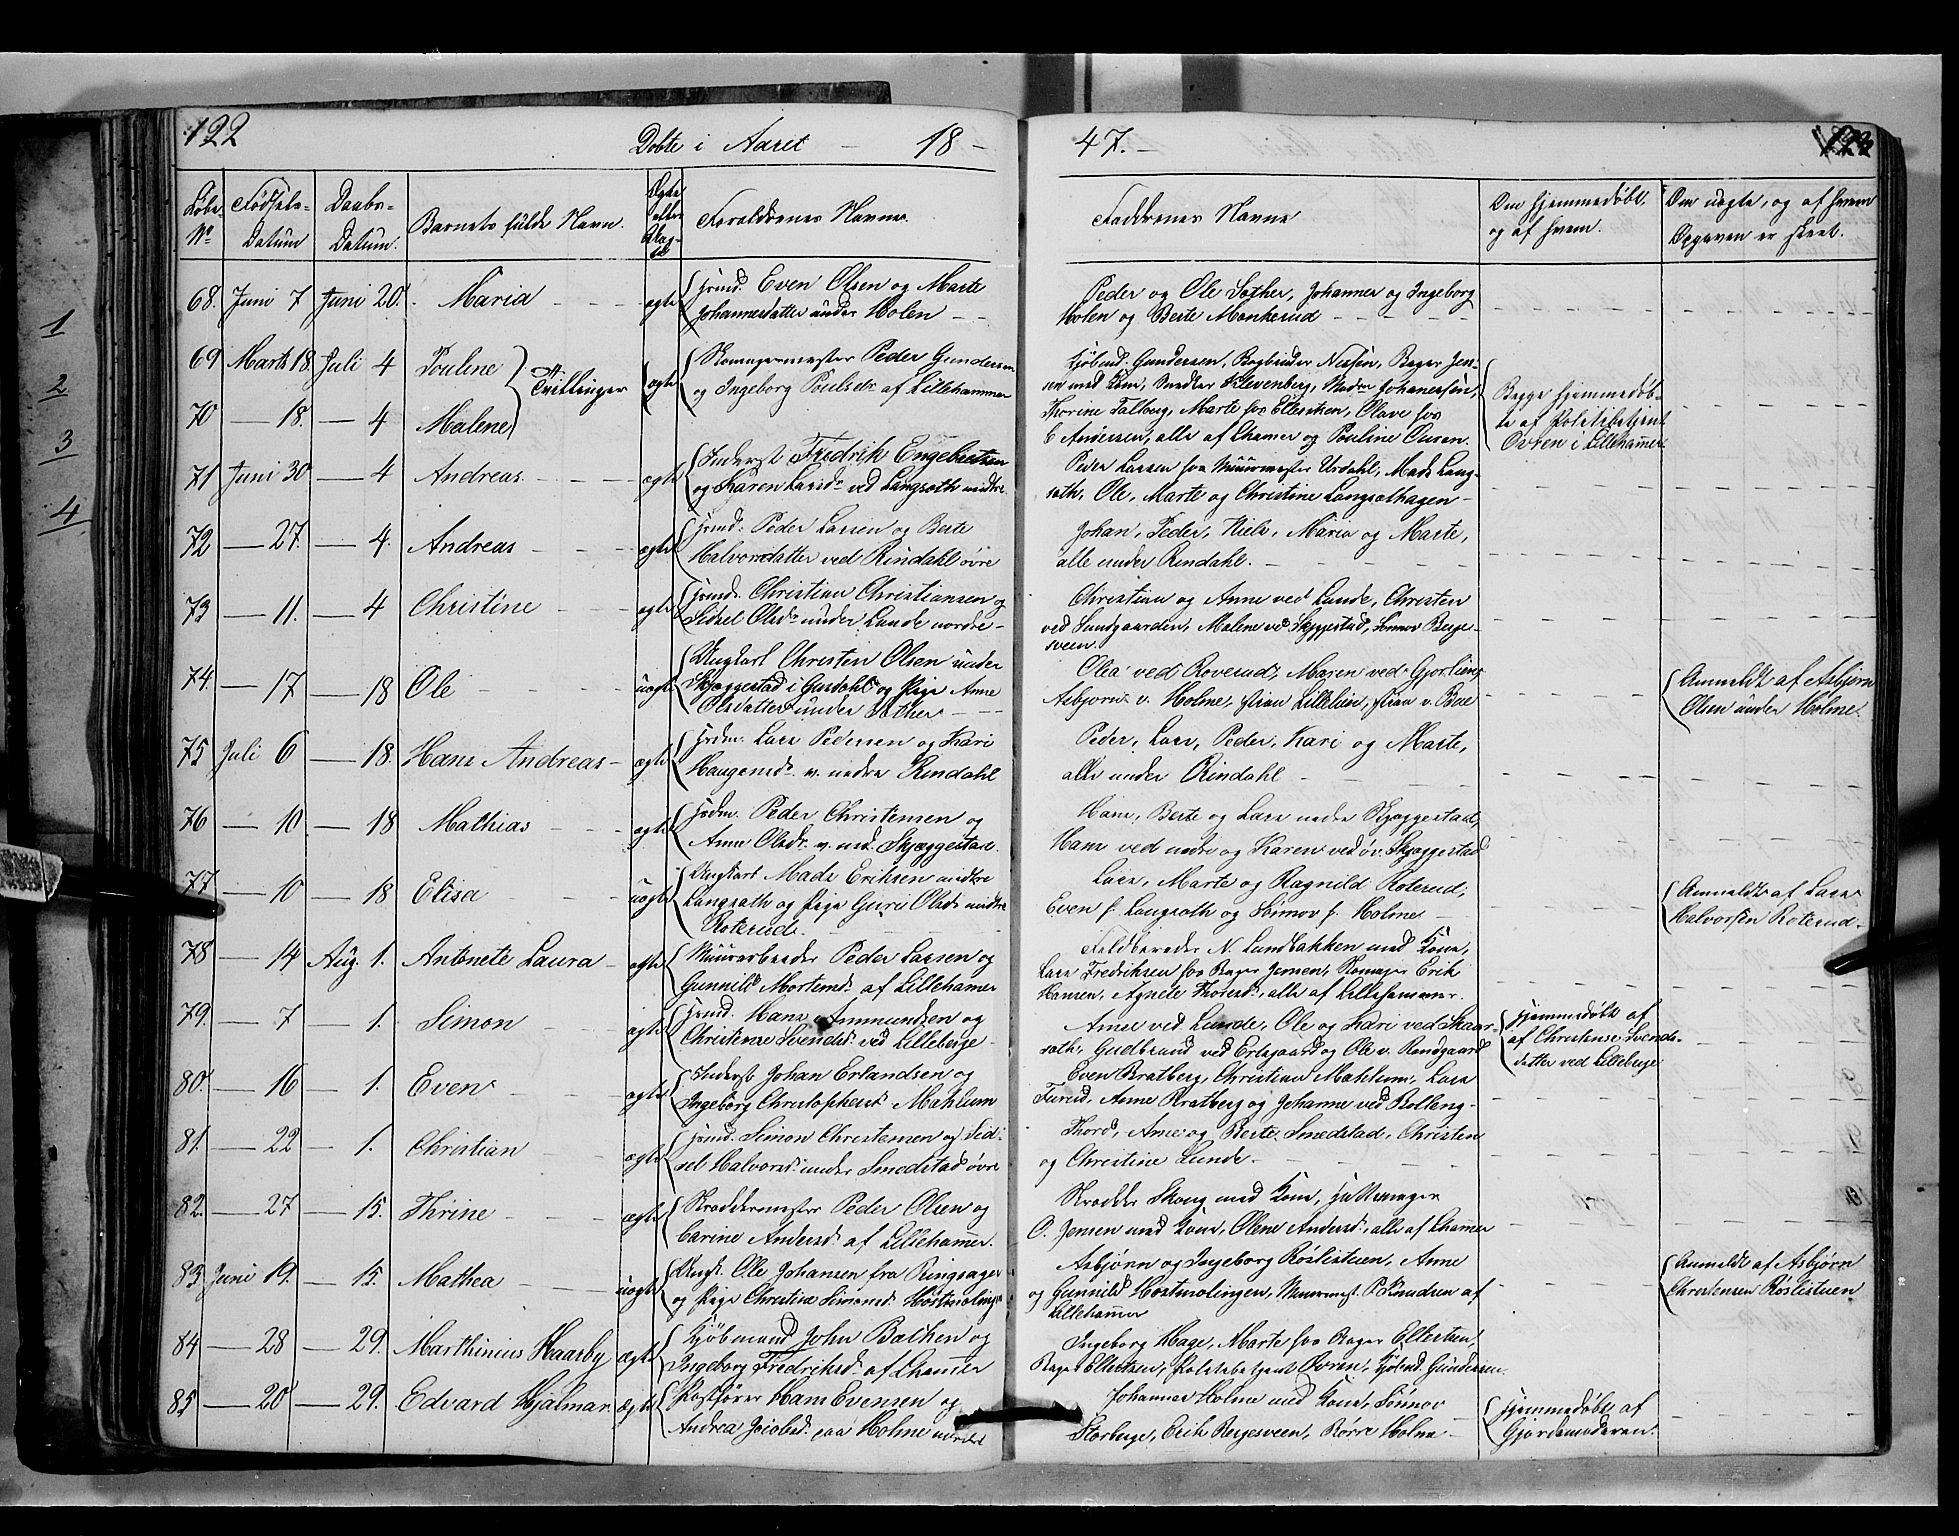 122
Døbte i Aaret - 18 -
47. -
1
2
3
4
Løbe- No
Fødsels- Datum
Daabs- Datum.
Barnets fulde Navn.
Ægte eller Uægte
Forældrenes Navne.
Faddrenes Navne
Om hjemmedøbt, og af hvem.
Om uægte, og af hvem Opgaven er skeet.
68. Juni 7 Juni 20. Maria - - - ægte
Huusmd. Even Olsen og Marte
Johannesdatter under Holen - -
Peder og Ole Sother, Johannes og Ingeborg
Holen og Berte Monkerud - - - -
69 Marts 18. Juli 4 Pouline
Tvillinger
70 - 18. - 4 Malene
ægte
Skomagermester Peder Gundersen
og Ingeborg Poulsdr. af Lillehammer
Kjøbmd. Gundersen, Bogbinder Nilsen, Bager Jen-
sen med Kone, Sadler Klevenberg, Madm Johanesen,
Thorine Talberg, Marte fra Ellertsen, Olave fra
C Andersen, alle af Lhamer og Pouline Owren.
Begge hjemmedøb-
te af Politibetjent
Owren i Lillehamer
71 Juni 30 - 4 Andreas - - - ægte
Inderst Fredrik Engebretsen
og Karen Larsdr. ved Langsoth nedtre
Peder Larsen fra Muurmester Urdahl, Mads Lang-
soth, Ole, Marte og Christine Langsothagen -
72 - 27. - 4. Andreas - - - ægte
Huusmd. Peder Larsen og Berte
Halvorsdatter ved Rindahl øvre
Johan, Peder, Niels, Maria og Marte,
alle under Rindahl. - - - -
73 - 11. - 4 Christine - - ægte
Huusmd. Christian Christiansen og
Sidsel Olsdr. under Lunde nordre -
Christian og Anne ved Lunde, Christen
ved Sundgaarden, Malene ved Skjeggestad, Sønnov Berge-
sveen.
74. - 17 - 18 Ole - - - uægte
Ungkarl Christen Olsen under
Skjæggestad i Gusdahl og Pige Anne
Olsdatter under Sother - - -
Olea ved Roverud, Maren ved Gjorlien,
Asbjørn v. Holme, Stian Lillelien, Stian v. Bue
Anmeldt af Asbjørn
Olsen under Holme.
75 Juli 6 - 18. Hans Andreas - ægte
Huusm. Lars Pedersen og Kari
Haugensdr. v. nedre Rindahl
Peder, Lars, Peder, Kari og Marte,
alle under Rindahl -
76 - 10 - 18 Mathias - - ægte
Huusm. Peder Christensen og
Anne Olsdr. v. ned. Skjæggestad.
Hans, Berte og Lars nedre Skjæggestad,
Hans ved nedre og Karen ved øv. Skjæggestad
77 - 10 - 18 Elisa - - - uægte
Ungkarl Mads Eriksen nedtre
Langsoth og Pige Guru Olsdr. nedtre
Roterud. - -
Lars, Marte og Ragnild Roterud,
Even f. Langsoth og Sønnov f. Holme -
Anmeldt af Lars
Halvorsen Roterud.
78 - 14 Aug. 1. Antonete Laura - ægte
Muurarbeider Peder Larsen og
Gunnild Mortensdr. af Lillehamer
Feldbereder N. Lundbakken med Kone,
Lars Fredriksen fra Bager Jensen, Skomager Erik
Hansen, Agnete Thoresdr., alle af Lillehammer.
79. - 7 - 1. Simon - - ægte
Huusmd. Hans Ammundsen og
Christense Svendsdr. ved Lilleberge -
Anne ved Lunde, Ole og Kari ved Skaar-
soth, Gudbrand ved Erlsgaard og Ole v. Rundgaard
Hjemmedøbt af
af Christense Svends-
datter ved Lilleberge
80. - 16 - 1. Even - - - ægte
Inderst Johan Erlandsen og
Ingeborg Christophersdr. Mæhlum
Even Bratberg, Christian Mæhlum, Lars
Furud, Anne Bratberg og Johanne ved Bolleng -
81. - 22 - 1. Christian - - ægte
Huusmd. Simon Christensen og Sid-
sel Halvorsdr. under Smedstad øvre
Thord, Anne og Berte Smedstad, Christen
og Christine Lunde. -
82. - 27 - 15. Thrine - - - ægte
Skreddermester Peder Olsen og
Carine Andersdr. af Lillehamer.
Skredder Skoug med Kone, Hattemager
O. Jensen med Kone, Olene Andersdr., alle af Lhamer
83 Juni 19. - 15. Mathea - - - uægte
Ungk. Ole Johansen fra Ringsager
og Pige Christine Simonsdr. Høstmolinge
Asbjørn og Ingeborg Røslistuen, Anne
og Gunnild Høstmolingen, Muurmest. P. Knudsen af
Lillehamer
Anmeldt af Asbjørn
Christensen Røslistuen
84 - 28 - 29. Marthinius Haarby ægte
Kjøbmand John Bakken og
Ingeborg Fredriksdr. af Lhamer
Ingeborg Hage, Marte fra Bager Ellertsen,
Bager Ellertsen, Politibetjent Owren, Kjøbmd. Gundersen.
85 - 20 - 29. Edvard Hjalmar ægte
Postfører Hans Evensen og
Andrea Jacobsdr. paa Holme nordre
Johannes Holme med Kone, Sønnov
Storberge, Erik Bergesveen, Børre Holme -
Hjemmedøbt af
Gjordemoderen.